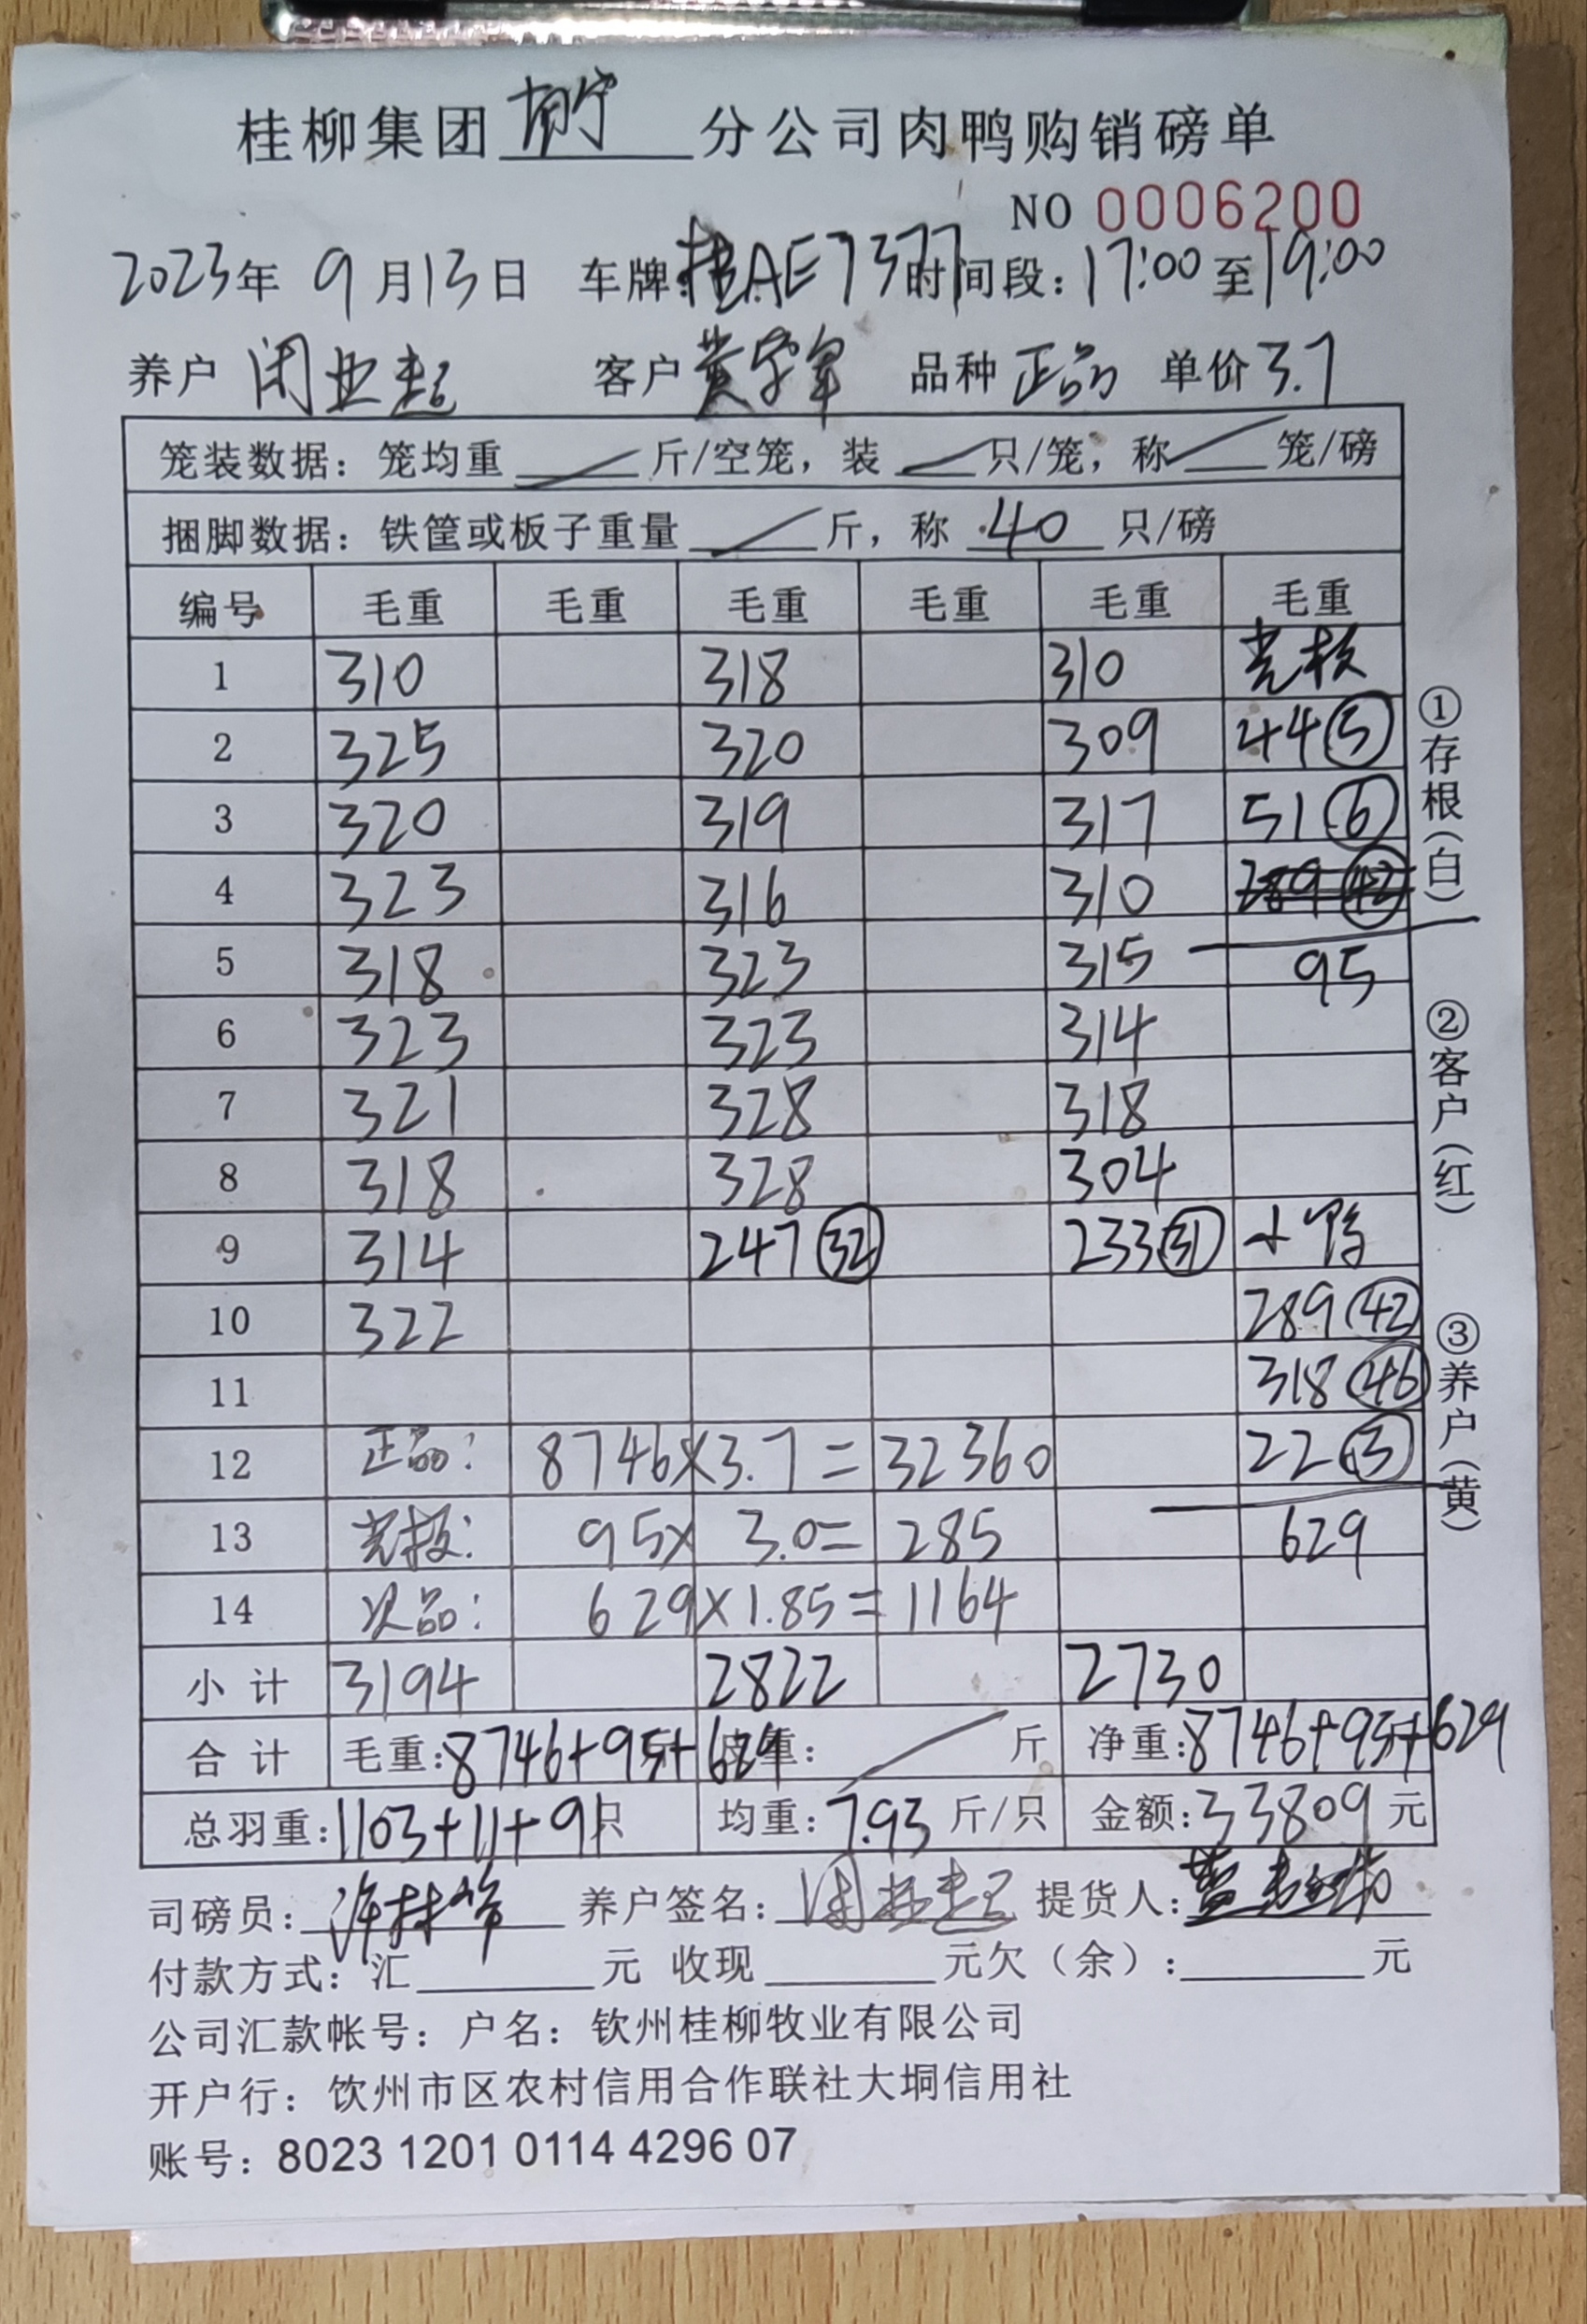 桂柳集团 南宁 分公司肉鸭购销磅单
NO 0006200
2023年 9月13日 车牌:桂AE7377 时间段:17:00至19:00
养户 闭业超 客户 黄家军 品种 正品 单价3.7
笼装数据:笼均重 斤/空笼,装 只/笼,称 笼/磅
捆脚数据:铁筐或板子重量 斤,称 40 只/磅
编号 毛重 毛重 毛重 毛重 毛重 毛重
1 310 318 310 光板
2 325 320 309 44⑤
3 320 319 317 51⑥
4 323 316 310 289㊷
5 318 323 315 95
6 323 323 314
7 321 328 318
8 318 328 304
9 314 247㉜ 233㉛ 小鸭
10 322 289㊷
11 318㊻
12 正品: 8746×3.7=32360 22③
13 光板: 95×3.0=285 629
14 次品: 629×1.85=1164
小计 3194 2822 2730
合计 毛重:8746+95+629 皮重: 斤 净重:8746+95+629
总羽重:1103+11+91只 均重:7.93斤/只 金额:33809元
司磅员: 养户签名: 提货人:
付款方式:汇 元 收现 元欠(余): 元
公司汇款帐号:户名:钦州桂柳牧业有限公司
开户行:饮州市区农村信用合作联社大垌信用社
账号:8023 1201 0114 4296 07
①存根(白)
②客户(红)
③养户(黄)